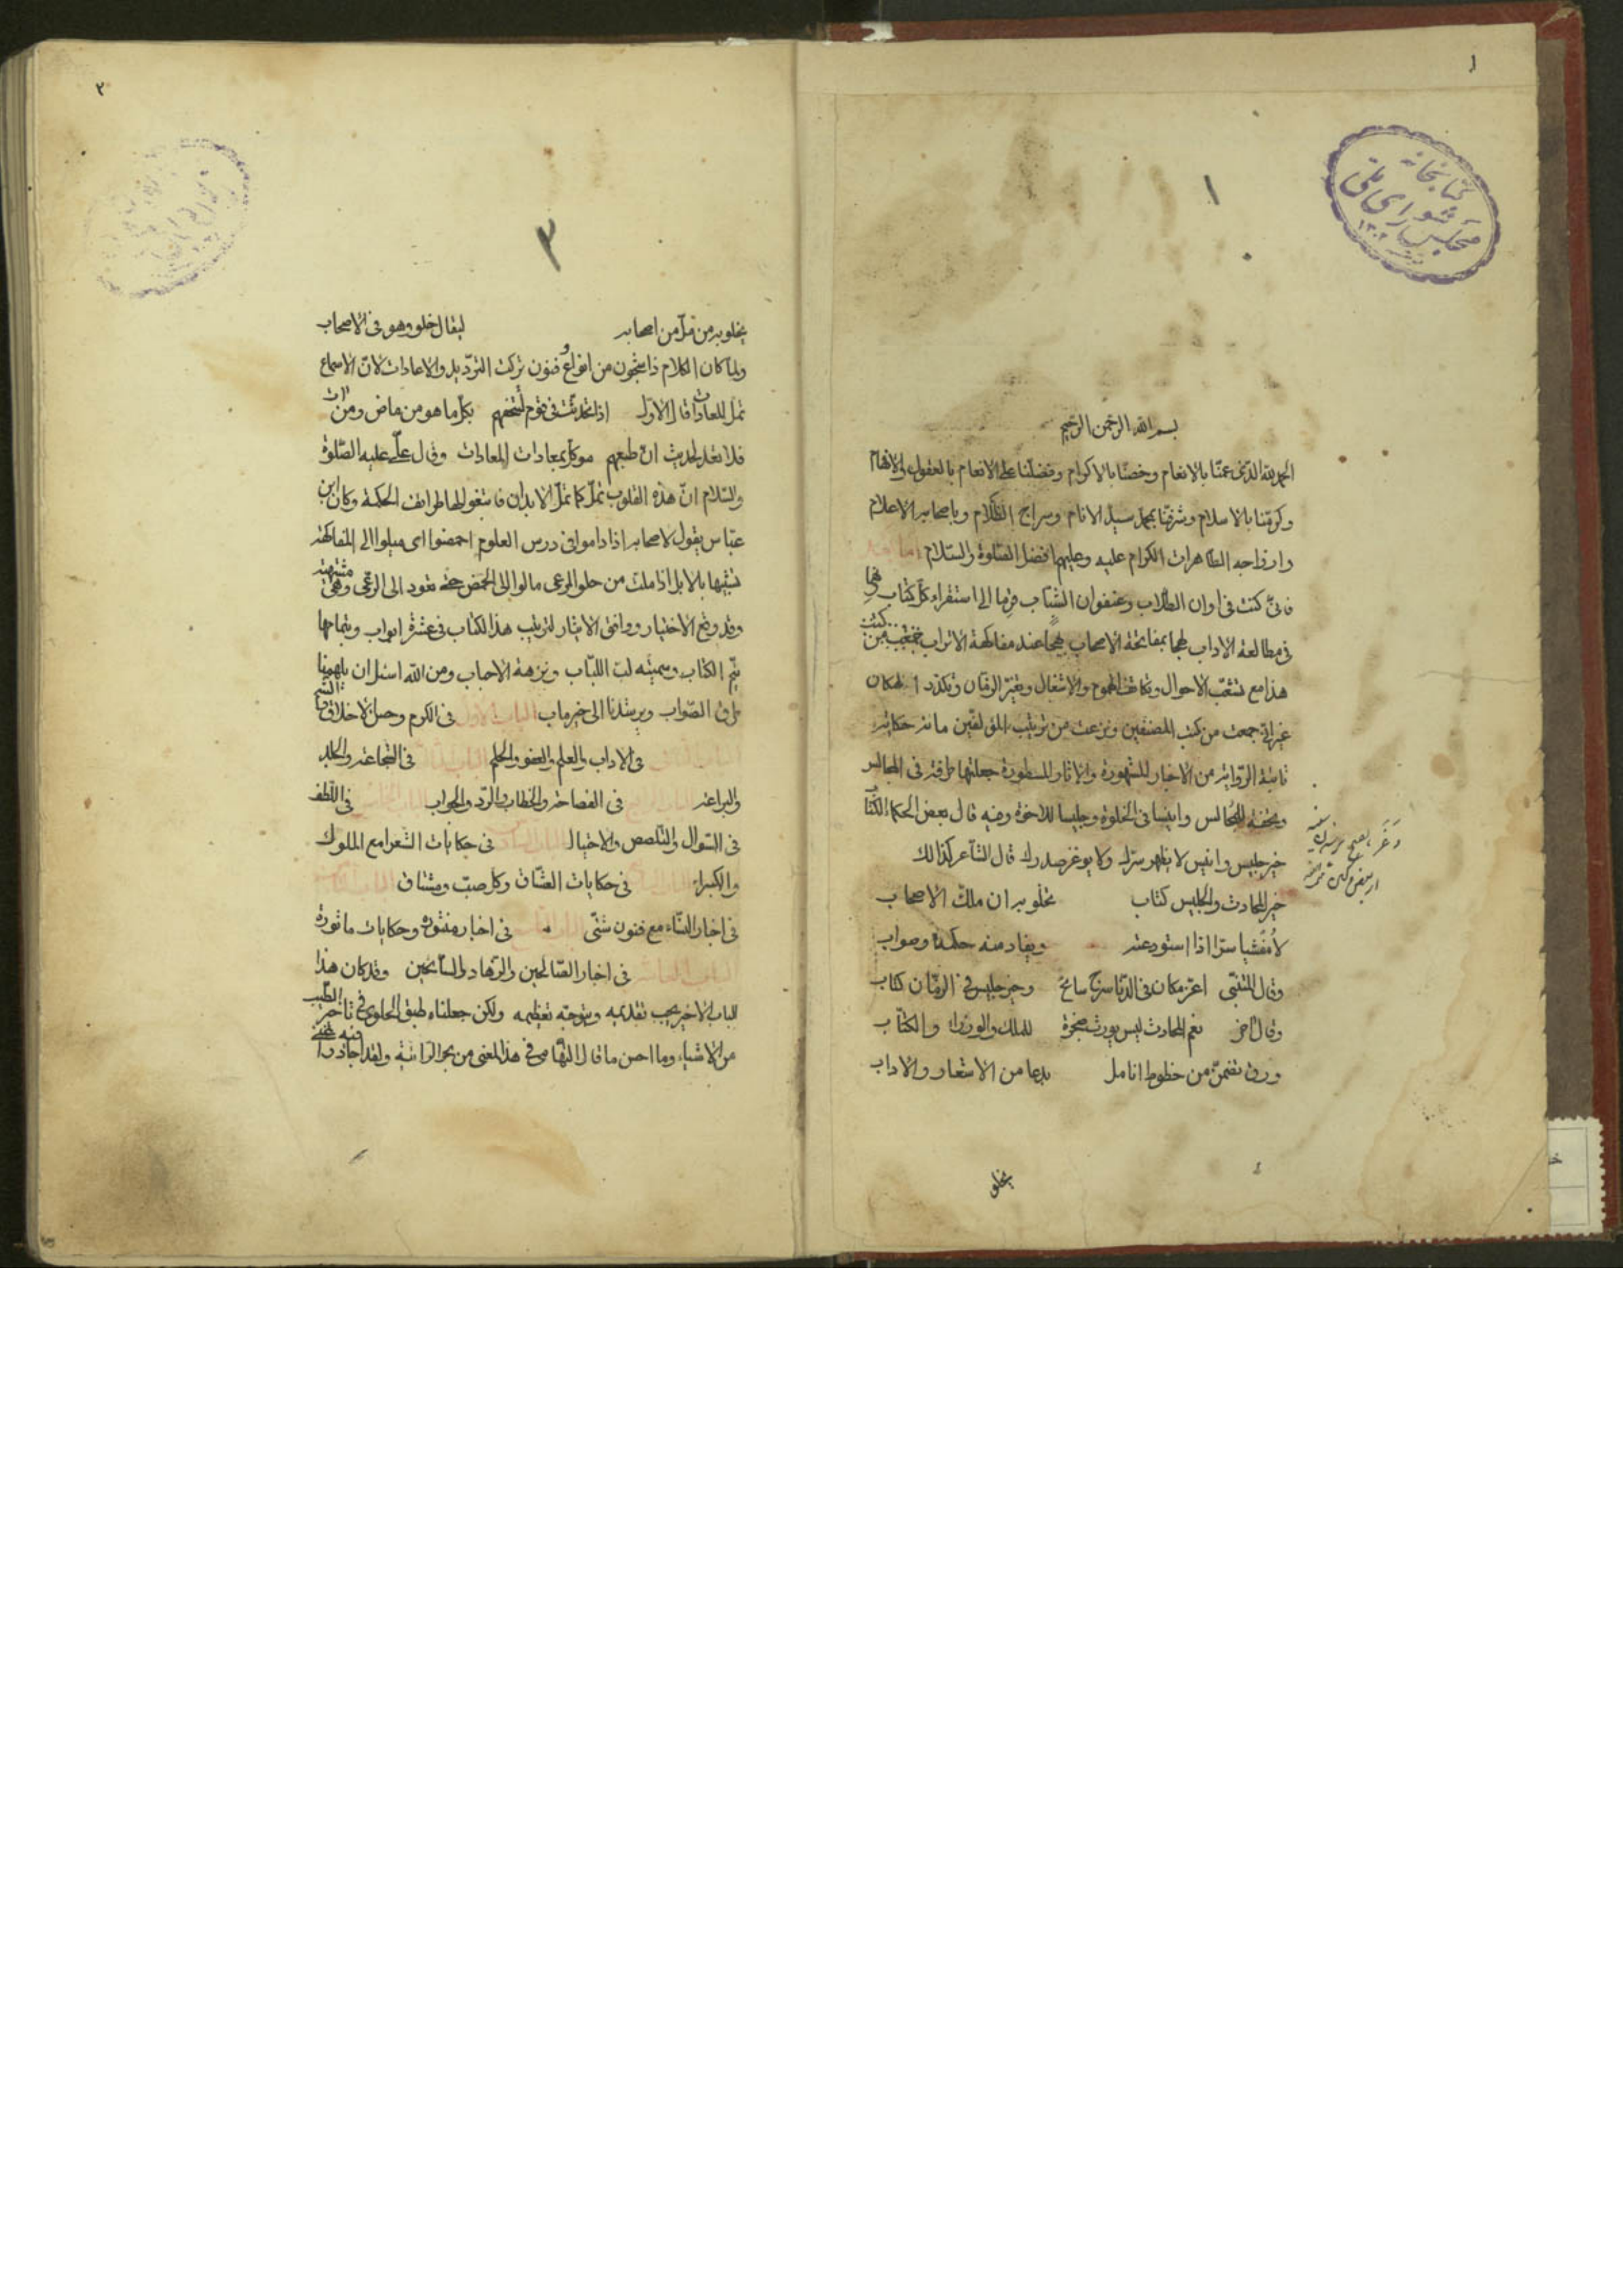 ١
١
كتابخانه
مجلس شورای ملی
بسم الله الرحمن الرحيم
الحمد لله الذی عمّنا بالانعام وخصّنا بالاكرام وفضّلنا على الانعام بالعقول والافهام
وكرّمنا بالاسلام وشرّفنا بمحمد سيد الانام وسراج الظلام وباصحابه الاعلام
وازواجه الطاهرات الكرام عليه وعليهم افضل الصلوة والسلام اما بعد
فانّی كنت فی اوان الطلاب وعنفوان الشباب الى استقراء كلّ كتاب
فی مطالعة الاداب لهجا بمفاتحة الاصحاب بهجا عند مفاكهة الاتراب كنت
هذا مع تشعّب الاحوال وتكاثف الهموم والاشغال وتغيّر الزمان وتكدّر المكان
غير انّی جمعت من كتب المصنفين ونزعت من ترتيب المؤلفين ما حكايته
الرواية من الاخبار المشهورة والاثار المسطورة جعلتها فی المجالس
وتحفة للمجالس وانيسا فی الخلوة وجليسا للاخوة وفيه قال بعض الحكماء الكتاب
خير جليس وانيس لا يظهر سرّك ولا يوغر صدرك قال الشاعر كذلك
خير المحادث والجليس كتاب تخلو به ان ملّك الاصحاب
لا مفشيا سرّا اذا استودعته ويفاد منه حكمة وصواب
وقال المتنبّی اعزّ مكان فی الدنا سرج سابح وخير جليس فی الزمان كتاب
وقال آخر نعم المحادث ليس يورث ضجرة للملك والوزراء والكتّاب
ورق تضمّن من خطوط انامل بدعا من الاشعار والاداب
يخلو
٢
٣
يخلو به من ملّ من اصحابه ليقال خلو وهو فی الاصحاب
ولما كان الكلام ذا شجون من انواع وفنون تركت الترديد والاعادات لانّ الاسماع
تملّ المعادات قال الاول اذا تحدّثت فی قوم لتتحفهم بكلّ ما هو من ماض ومن آت
فلا تعد لحديث انّ طبعهم موكّل بمعادات المعادات وقال علی عليه الصلوة
والسلام انّ هذه القلوب تملّ كما تملّ الابدان فابتغوا لها طرائف الحكمة وكان ابن
عبّاس يقول لاصحابه اذا داموا فی درس العلوم احمضوا ای ميلوا الى المفاكهة
تشبيها بالابل اذا ملّت من حلو المرعى مالوا الى الحمض حتى تعود الى الرعی وهی مشتهية
وقد وقع الاختيار ووافق الايثار لترتيب هذا الكتاب فی عشرة ابواب وبتمامها
يتمّ الكتاب وسميته لبّ اللباب ونزهة الاحباب ومن الله اسئل ان يلهمنا
طرق الصواب ويرشدنا الى خير ماب الباب الاول فی الكرم وحسن الاخلاق
الباب الثانی فی الاداب والعلم والعفو والحلم الباب الثالث فی الشجاعة والجلد
والبراعة الباب الرابع فی الفصاحة والخطاب والردّ والجواب الباب الخامس فی اللطف
فی السؤال والتلصص والاحتيال الباب السادس فی حكايات الشعرا مع الملوك
والكبراء الباب السابع فی حكايات العشّاق وكل صبّ ومشتاق الباب الثامن
فی اخبار النساء مع فنون شتّى الباب التاسع فی اخبار منثوره وحكايات ماثورة
الباب العاشر فی اخبار الصالحين والزهاد والسائحين وقد كان هذا
الباب الاخير يجب تقديمه ويتوجّه تعظيمه ولكن جعلناه طبق الحلوى فی تاخير الطيب
من الاشياء وما احسن ما قال التهامی فی هذا المعنى من بحر ولقد اجاد